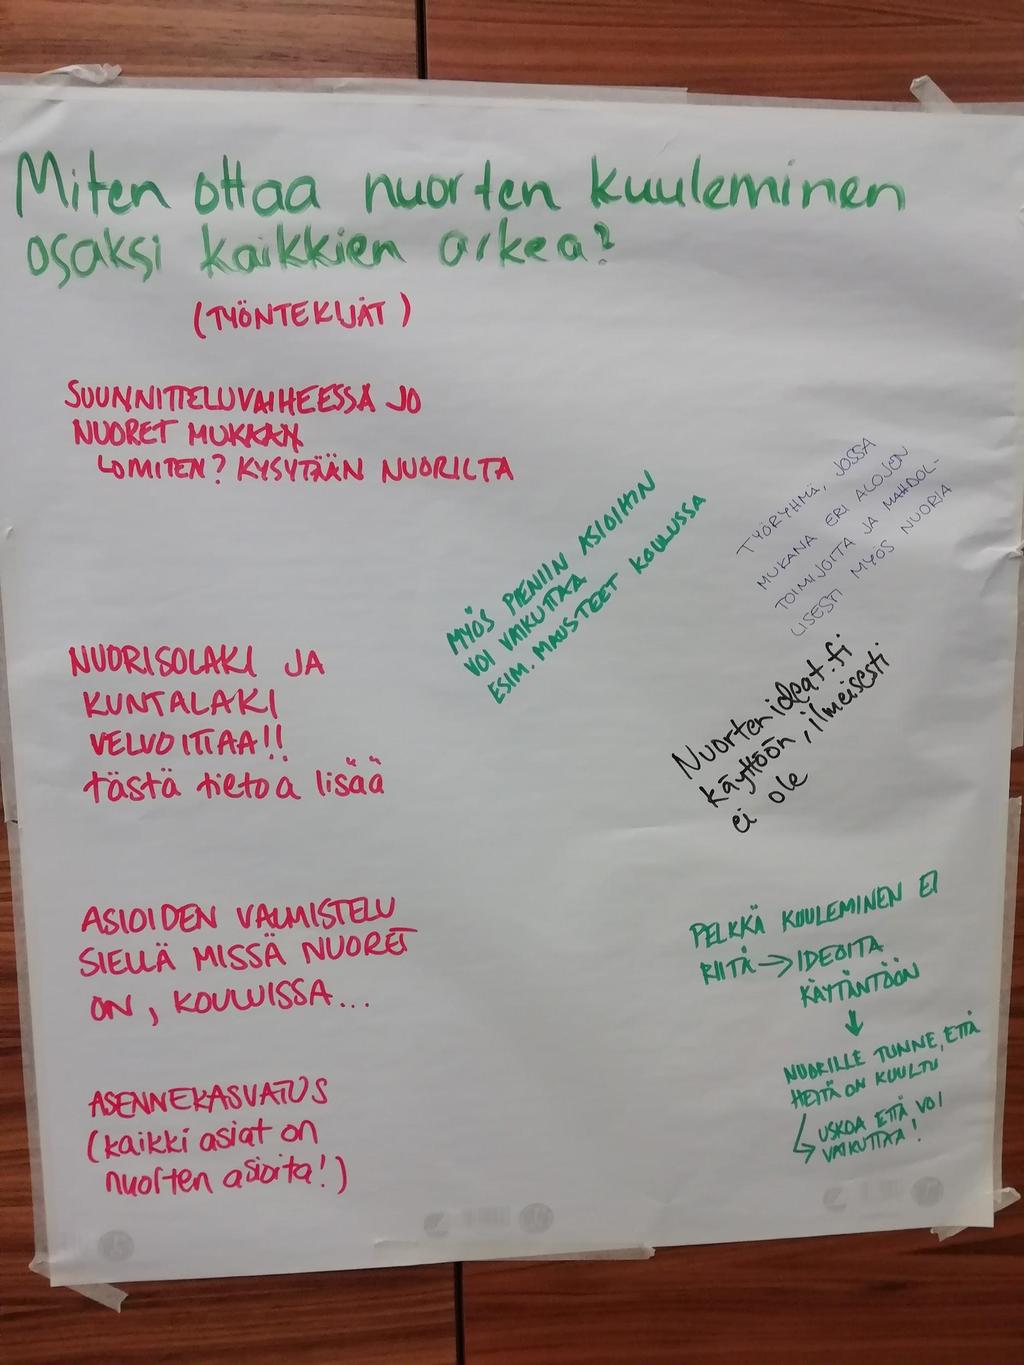 Miten ottaa nuorten kuuleminen
osaksi kaikkien arkea?
(TYÖNTEKIJÄT)
SUUNNITTELUVAIHEESSA JO
NUORET MUKAAN
↳ MITEN? KYSYTÄÄN NUORILTA
MYÖS PIENIIN ASIOIHIN
VOI VAIKUTTAA
ESIM. MAUSTEET KOULUSSA
TYÖRYHMÄ, JOSSA
MUKANA ERI ALOJEN
TOIMIJOITA JA MAHDOL-
LISESTI MYÖS NUORIA
NUORISOLAKI JA
KUNTALAKI
VELVOITTAA!!
tästä tietoa lisää
Nuortenideat.fi
käyttöön, ilmeisesti
ei ole
ASIOIDEN VALMISTELU
SIELLÄ MISSÄ NUORET
ON, KOULUISSA...
PELKKÄ KUULEMINEN EI
RIITÄ → IDEOITA
KÄYTÄNTÖÖN
↓
NUORILLE TUNNE, ETTÄ
HEITÄ ON KUULTU
↳ USKOA ETTÄ VOI
VAIKUTTAA!
ASENNEKASVATUS
(kaikki asiat on
nuorten asioita!)